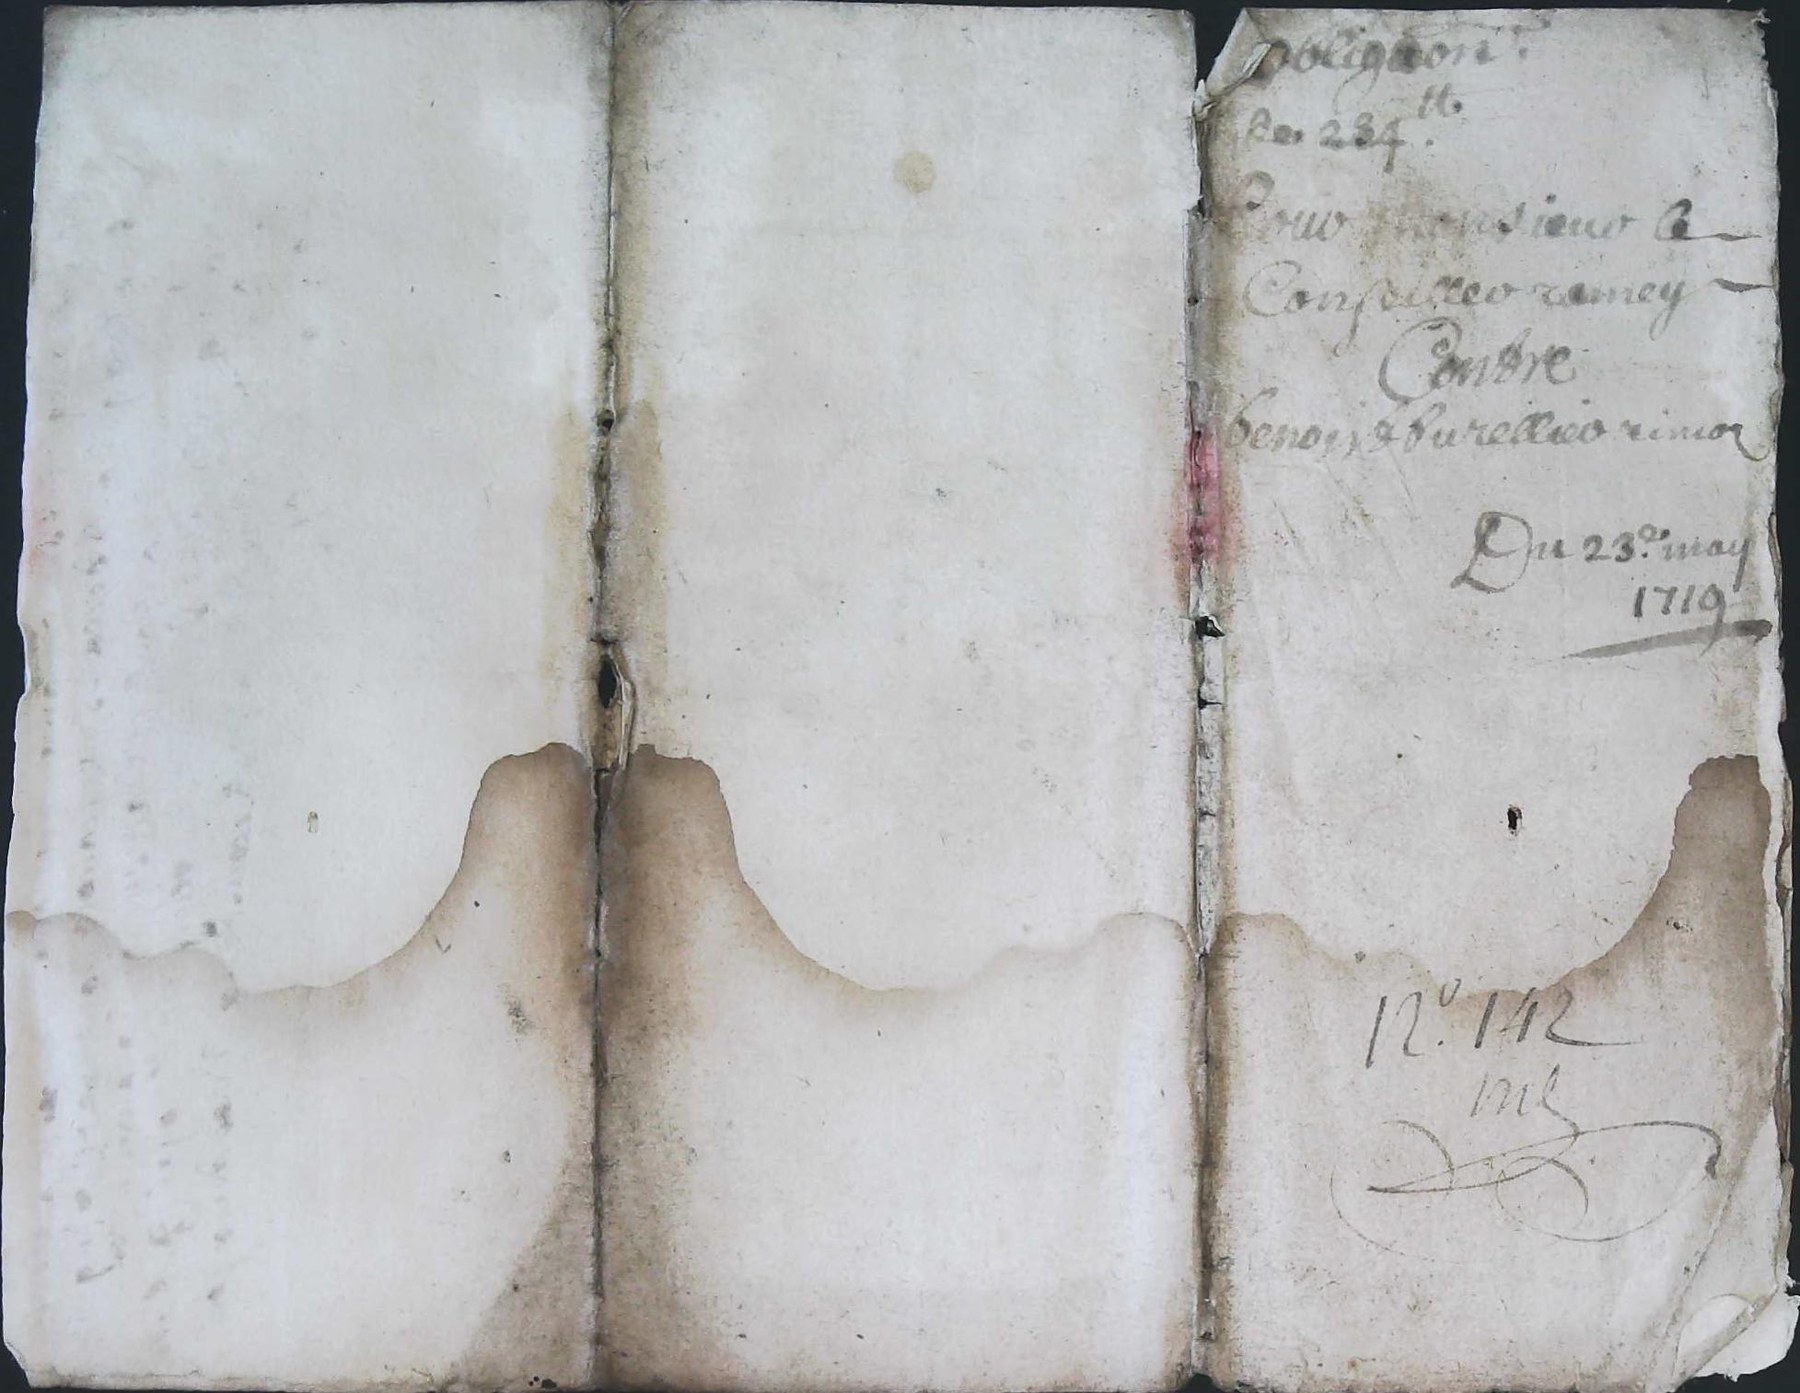 obligaon
de 234 lt.
Pour monsieur le
Conseiller ramey
Contre
benoist burellier rimoz
Du 23e may
1719
No. 142